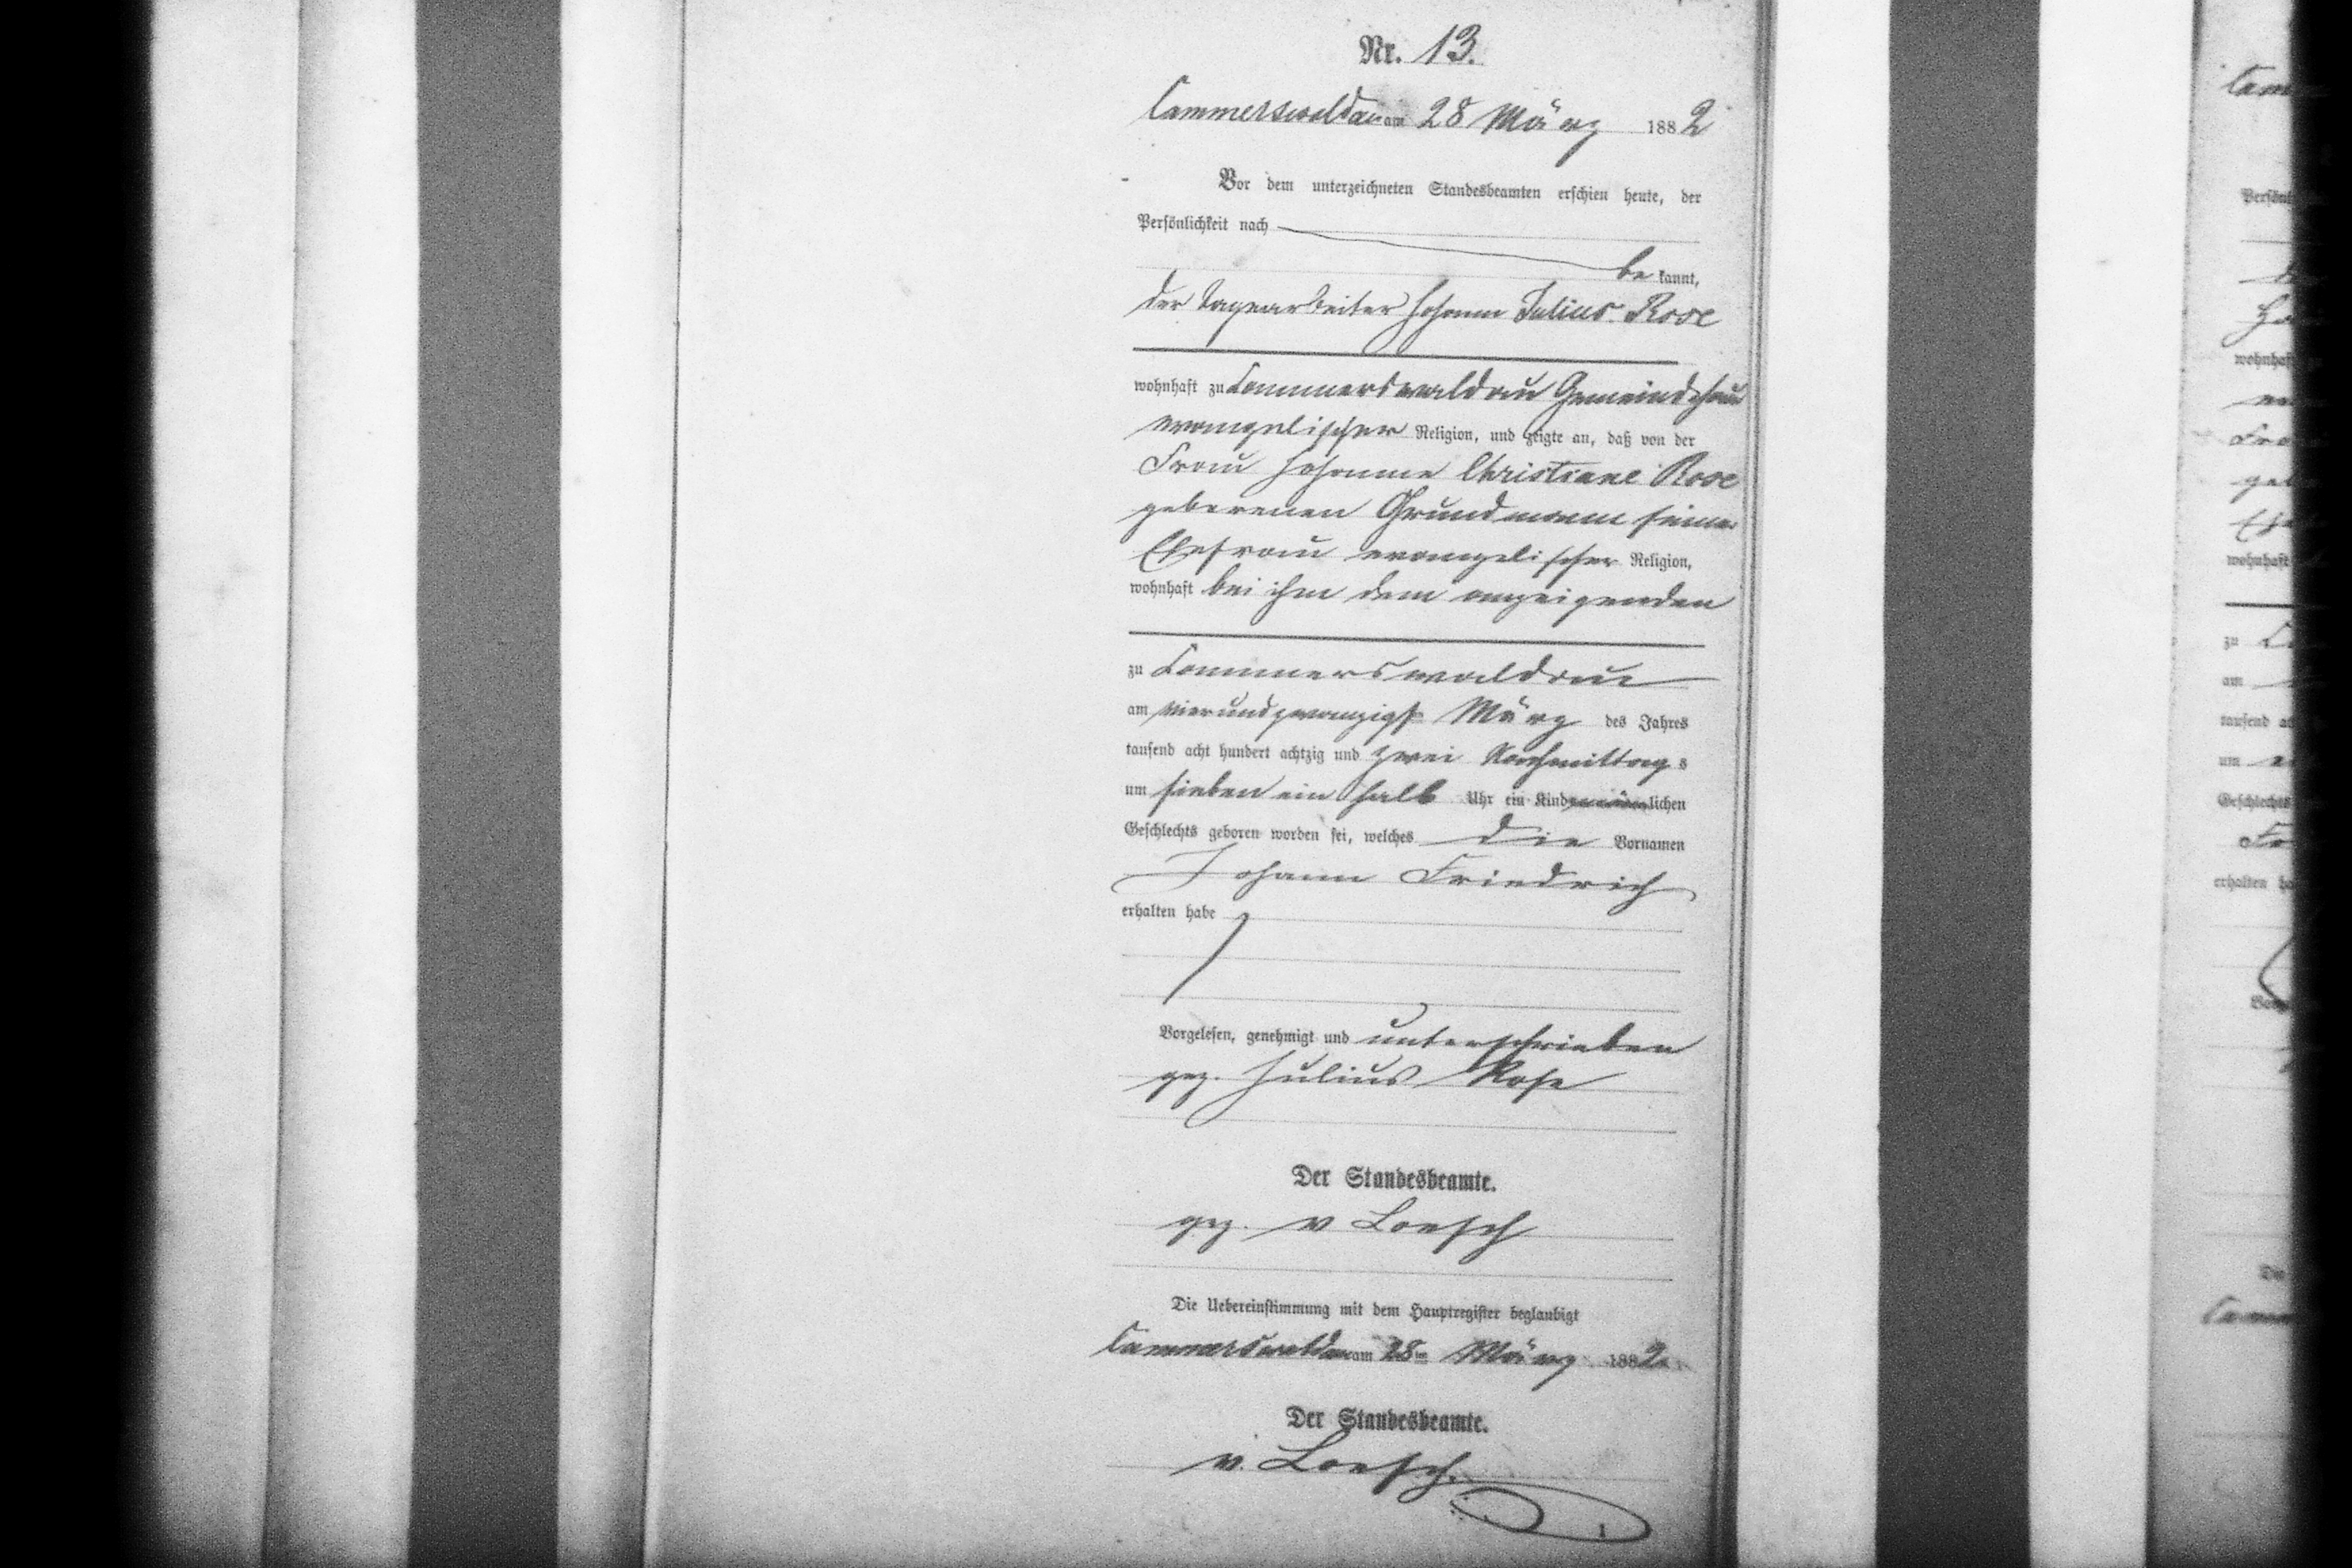 Nr. 13.
Cammerswaldau am 28 März 1882
Vor dem unterzeichneten Standesbeamten erschien heute, der
Persönlichkeit nach
be kannt,
der Tagearbeiter Johann Julius Rose
wohnhaft zu Cammerswaldau Gemeindehaus
evangelischer Religion, und zeigte an, daß von der
Frau Johanne Christiane Rose
geborenen Grundmann seiner
Ehefrau evangelischer Religion,
wohnhaft bei ihm dem anzeigenden
zu Cammerswaldau
am vierundzwanzigst März des Jahres
tausend acht hundert achtzig und zwei Nachmittags
um sieben ein halb Uhr ein Kind männlichen
Geschlechts geboren worden sei, welches die Vornamen
Johann Friedrich
erhalten habe
Vorgelesen, genehmigt und unterschrieben
gez. Julius Rose
Der Standesbeamte.
gez. v Loesch
Die Uebereinstimmung mit dem Hauptregister beglaubigt
Cammerswaldau am 28ten März 1882
Der Standesbeamte.
v. Loesch.
Cam
Persönl
wohnhaft
wohnhaft
zu
am
tausend a
um
Geschlechts
erhalten ha